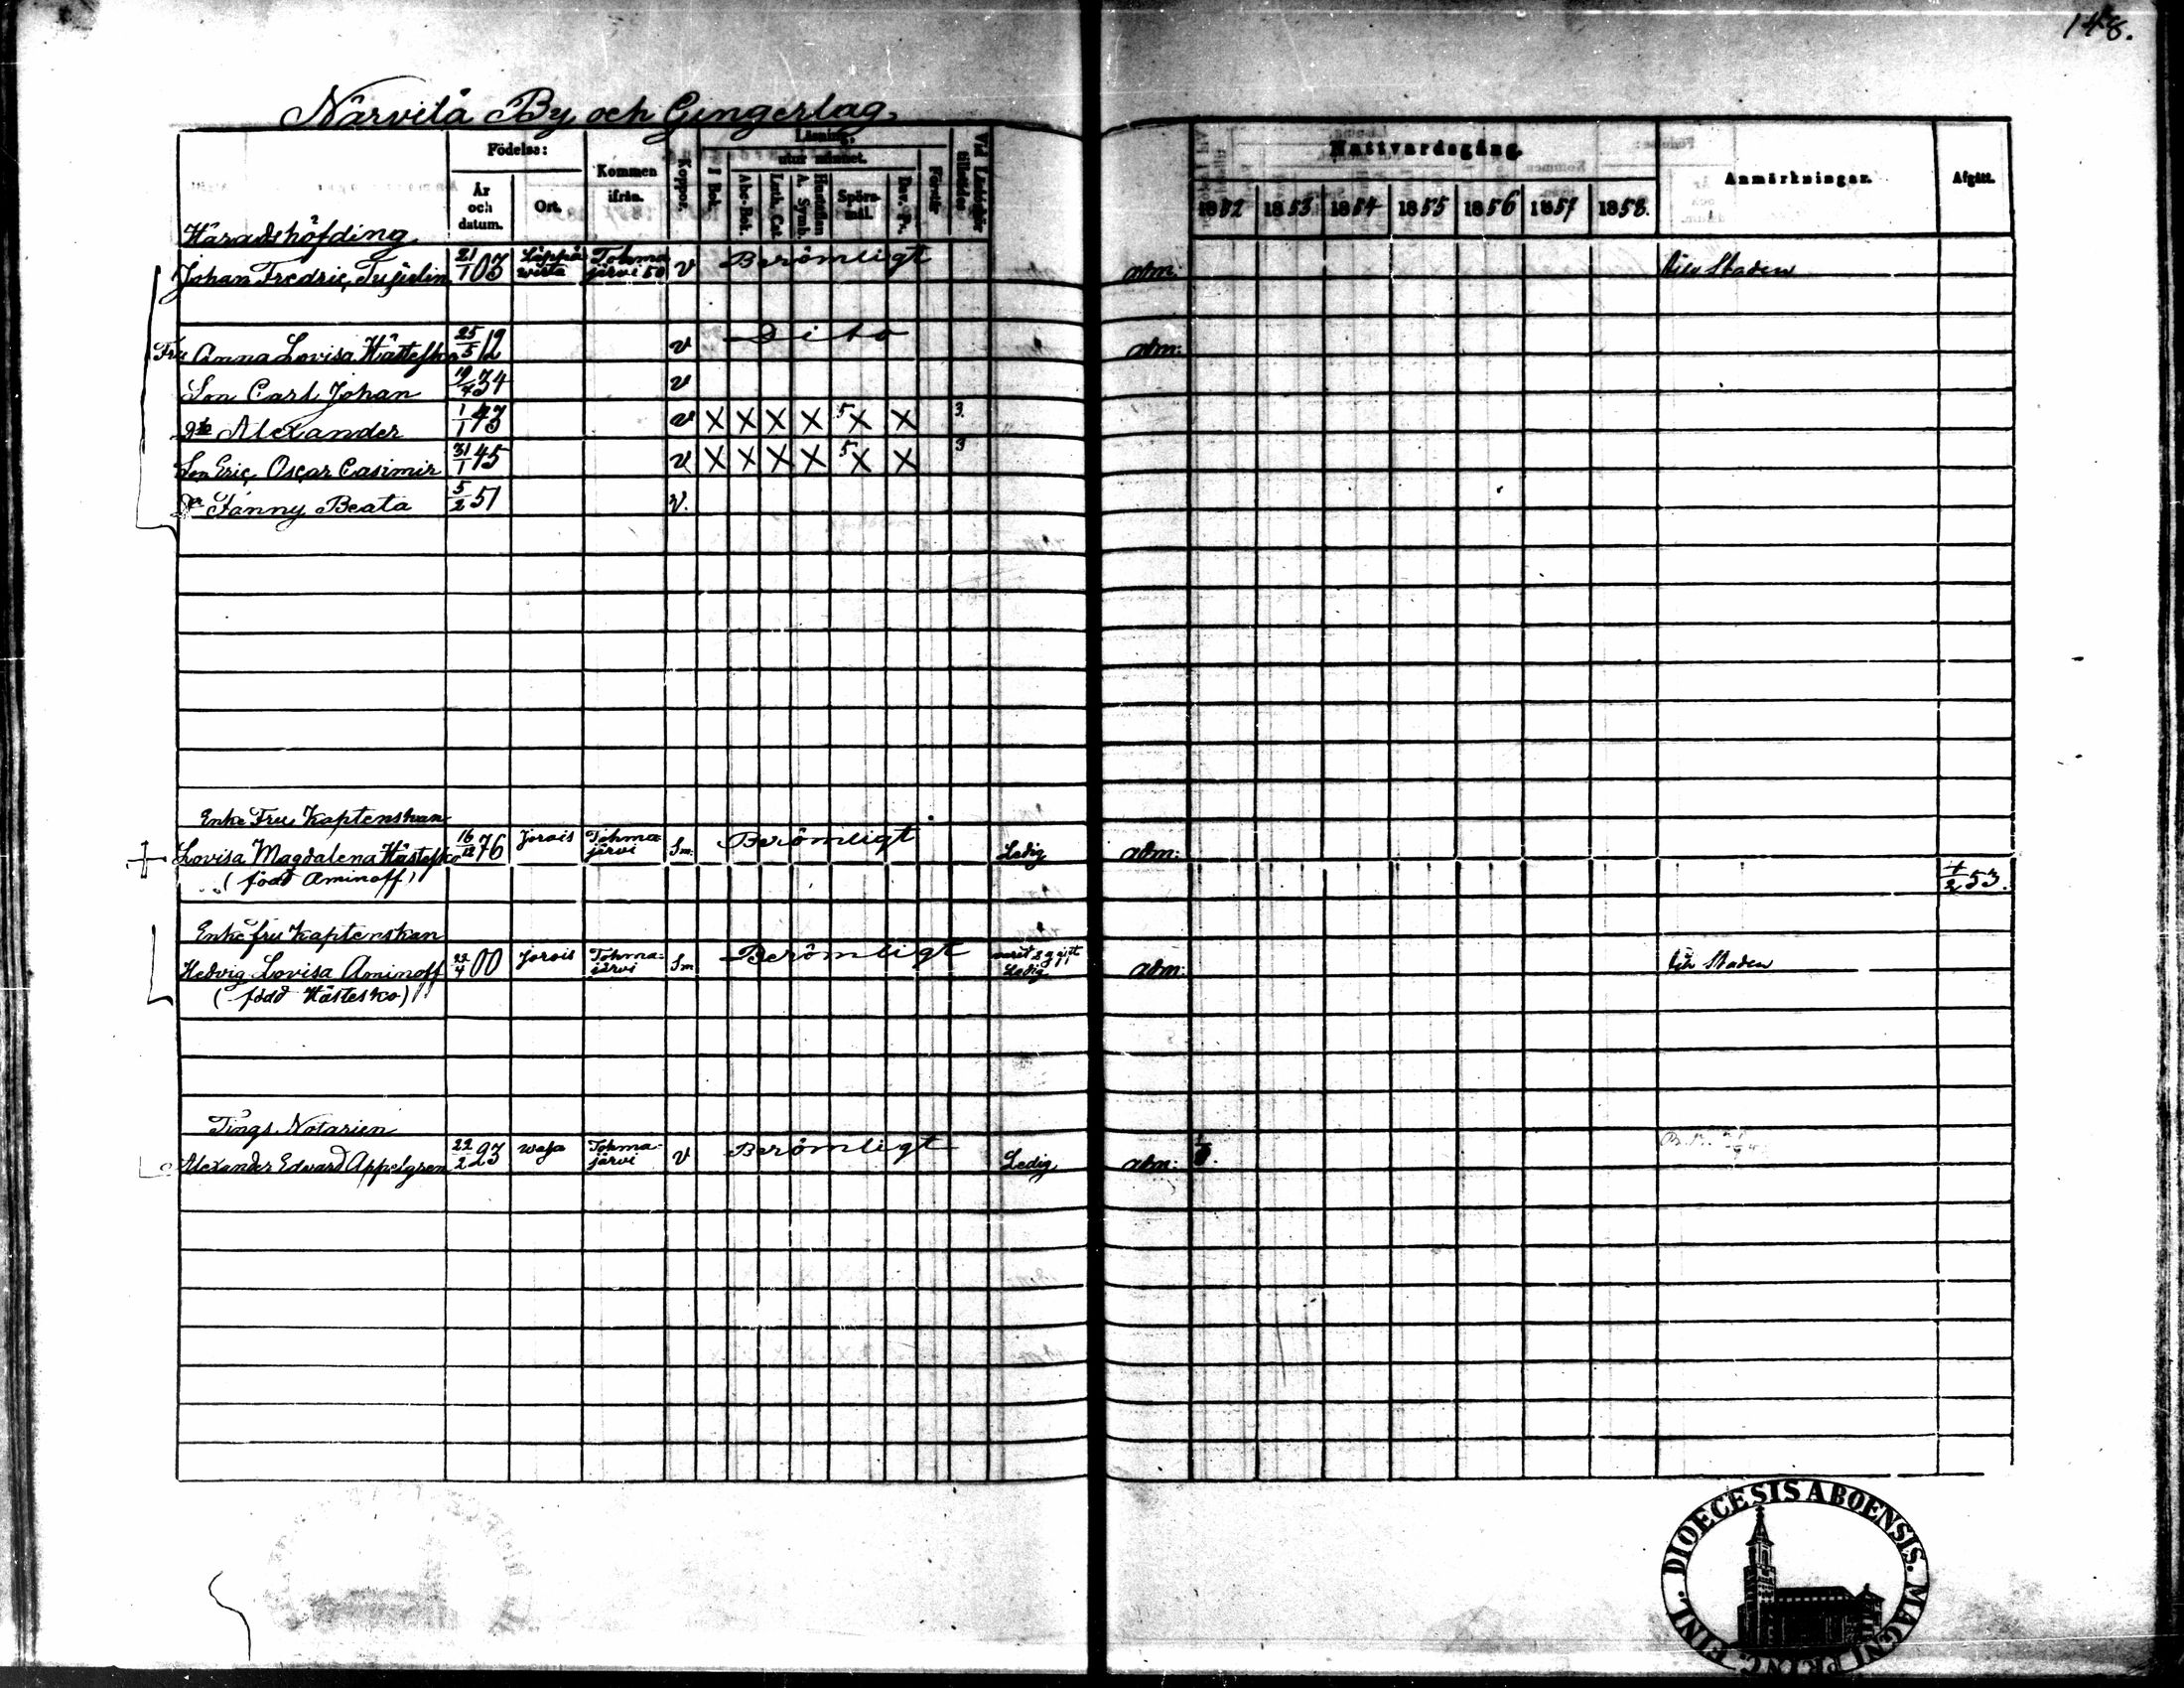 148.
Närvilä By och Gingerlag.
Födelse: Kommen ifrån. Koppor. Läsning, utur minnet. Förstår Vid Läsförhör tillstädes
År och datum. Ort. I Bok. Abc-Bok. Luth. Cat. Hustaflan A. Symb. Spörsmål. Dav. Ps.
Nattvardsgång. Anmärkningar. Afgått.
1852 1853 1854 1855 1856 1857 1858.
Häradshöfding
Johan Fredric 21/1 03 Tohmajärvi 50 v Berömligt adm: till Staden
Fru Anna Lovisa Hästesko 25/5 12 v Dito adm:
Son Carl Johan 19/7 34 v
Alexander 1/1 43 v X X X X 5 X X 3.
Son Eric Oscar Casimir 31/1 45 v X X X X 5 X X 3
Fanny Beata 5/2 51 v.
Enke Fru Kaptenskan
Lovisa Magdalena Hästesko 16/12 76 Jorois Tohmajärvi Sm: Berömligt Ledig adm:
(född Aminoff) 53.
Enke fru Kaptenskan
Hedvig Lovisa Aminoff 22/4 00 Jorois Tohmajärvi Sm Berömligt varit 2 g gift Ledig adm: till Staden
(född Hästesko)
Tings Notarien
Alexander Edvard Appelgren 22/2 23 Wasa Tohmajärvi v Berömligt Ledig adm:
DIOECESIS ABOENSIS. MAGNI PRINC. FINL.